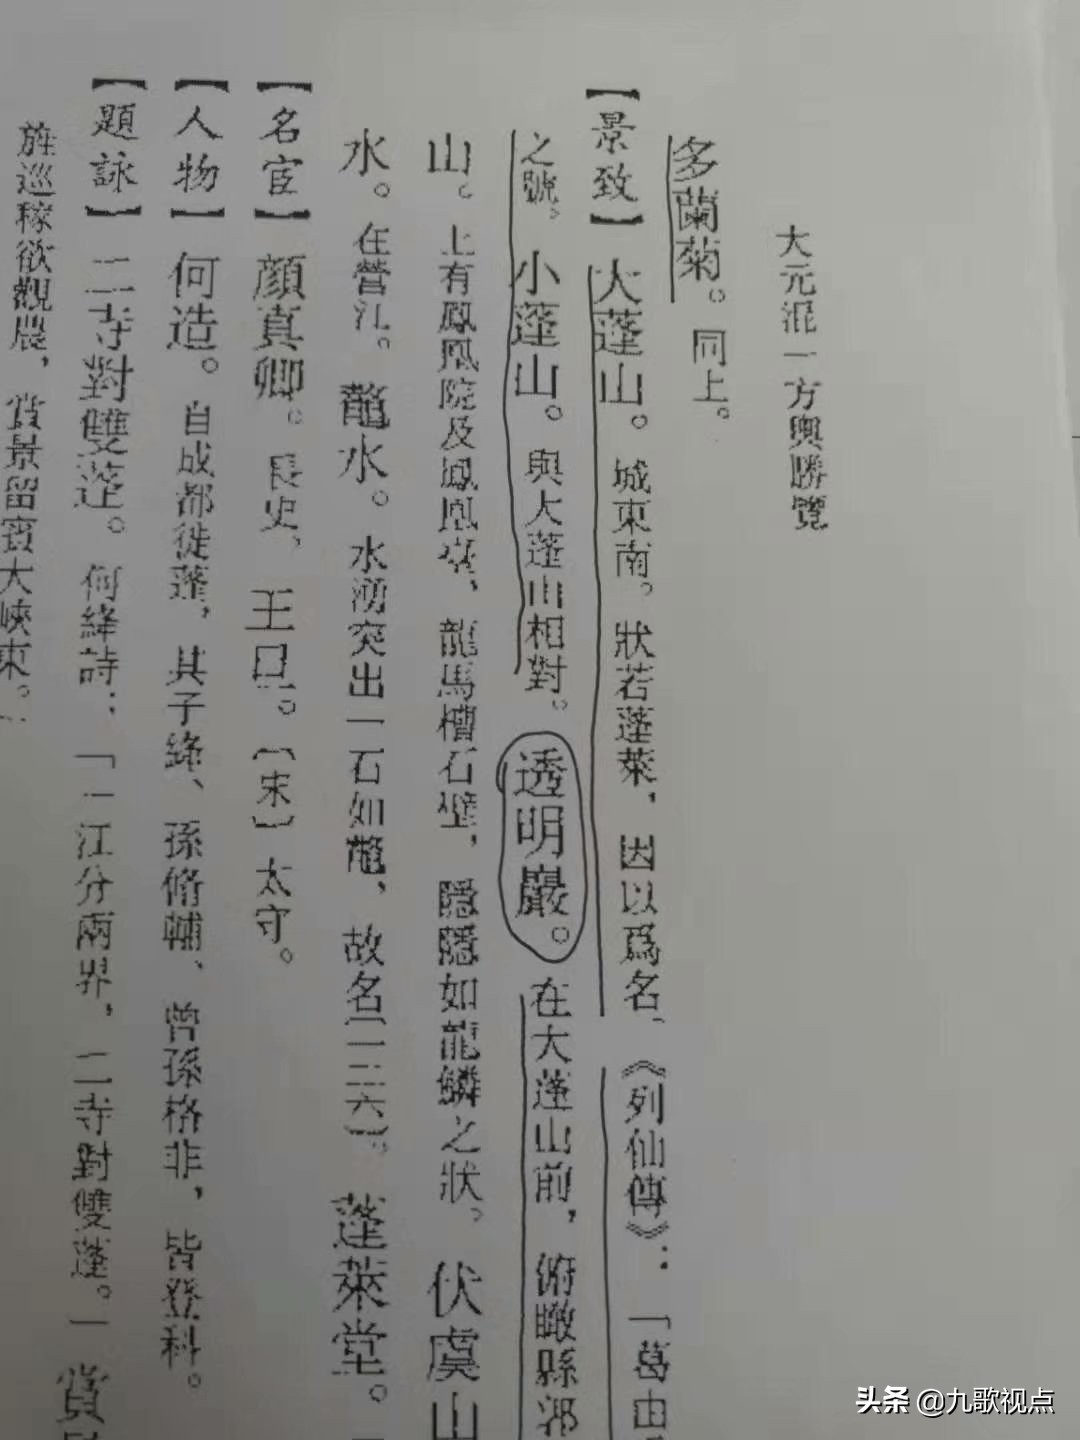 大元混一方輿勝覽
多蘭菊。同上。
【景致】大蓬山。城東南。狀若蓬萊，因以爲名。《列仙傳》：「葛由
之號。小蓬山。與大蓬山相對。透明巖。在大蓬山前，俯瞰縣郭
山。上有鳳凰院及鳳凰臺，龍馬槽石壁，隱隱如龍鱗之狀。伏虞山
水。在營江。鼇水。水湧突出一石如鼇，故名〔一二六〕。蓬萊堂。
【名宦】顏真卿。長史。王□。〔宋〕太守。
【人物】何造。自成都徙蓬，其子絳、孫脩輔、曾孫格非，皆登科。
【題詠】二寺對雙蓬。何絳詩：「一江分兩界，二寺對雙蓬。」賞
旌巡稼欲觀農，賞景留賓大峽東。
头条 @九歌视点